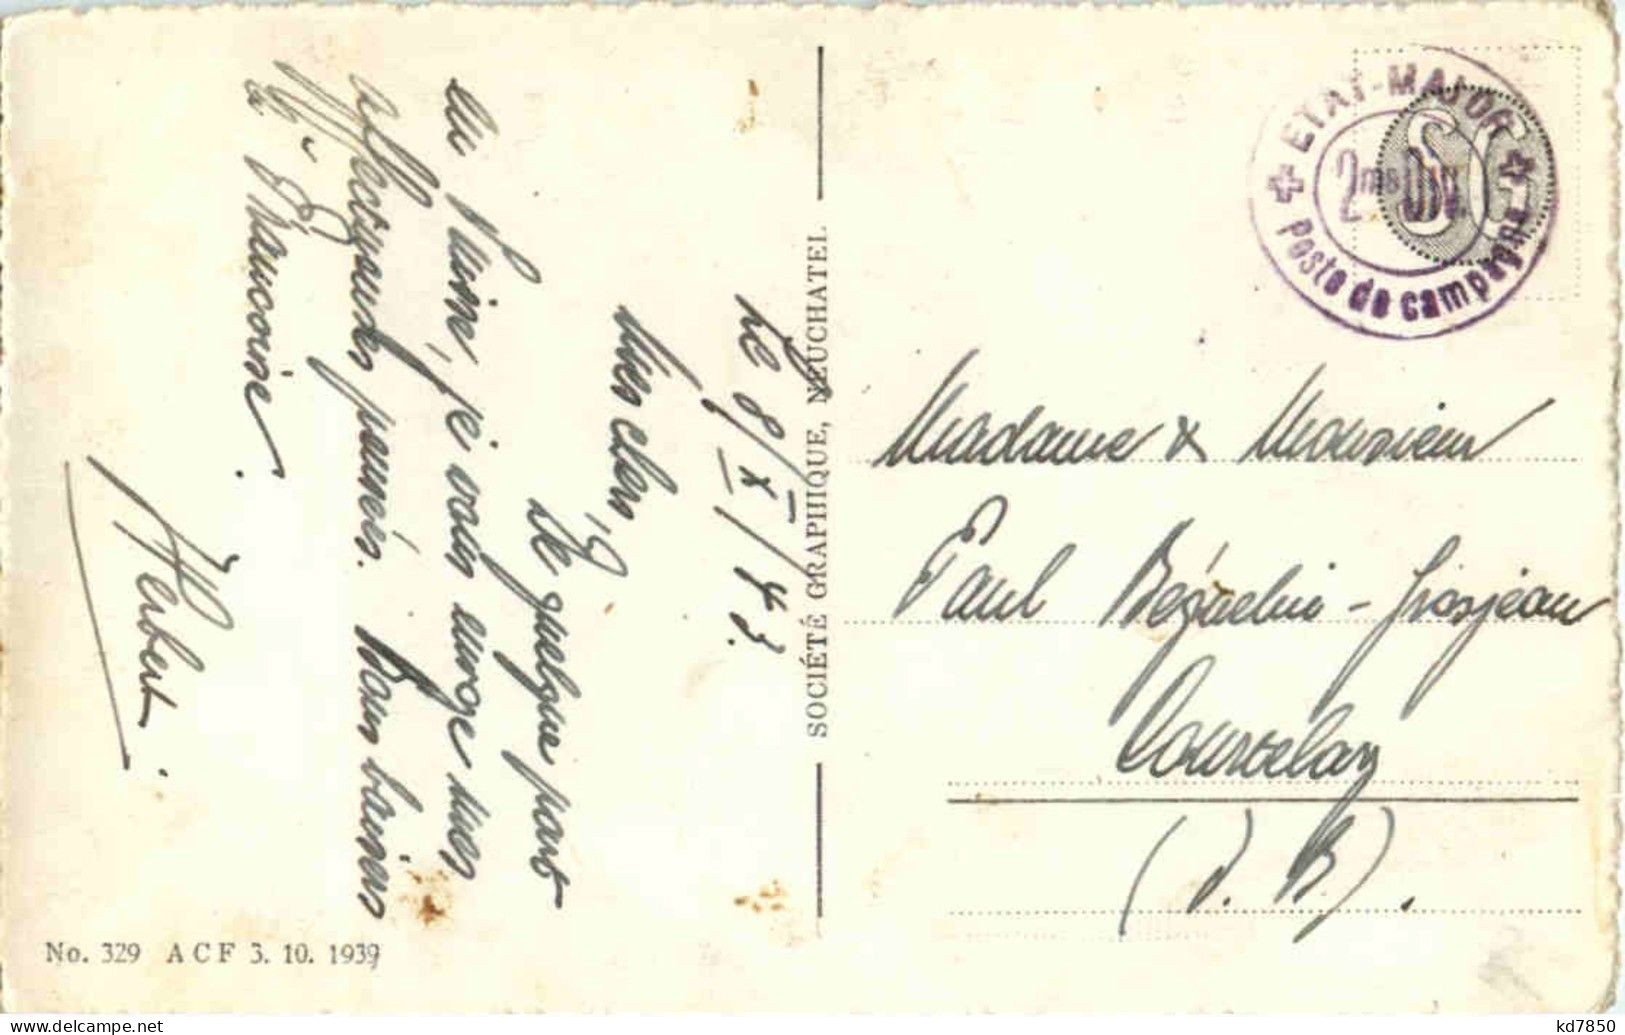 Le 8/XI/43.
Mes chers,
De quelque part
en Suisse, je vous envoie mes
affectueuses pensées. Bons baisers
à Françoise.
Herbert.
SOCIÉTÉ GRAPHIQUE, NEUCHATEL
No. 329 ACF 3. 10. 1939
ETAT-MAJOR
2me Div.
Poste de campagne
SG
Madame & Monsieur
Paul Béguelin-Grosjean
Courtelary
(J. B.).
kd7850